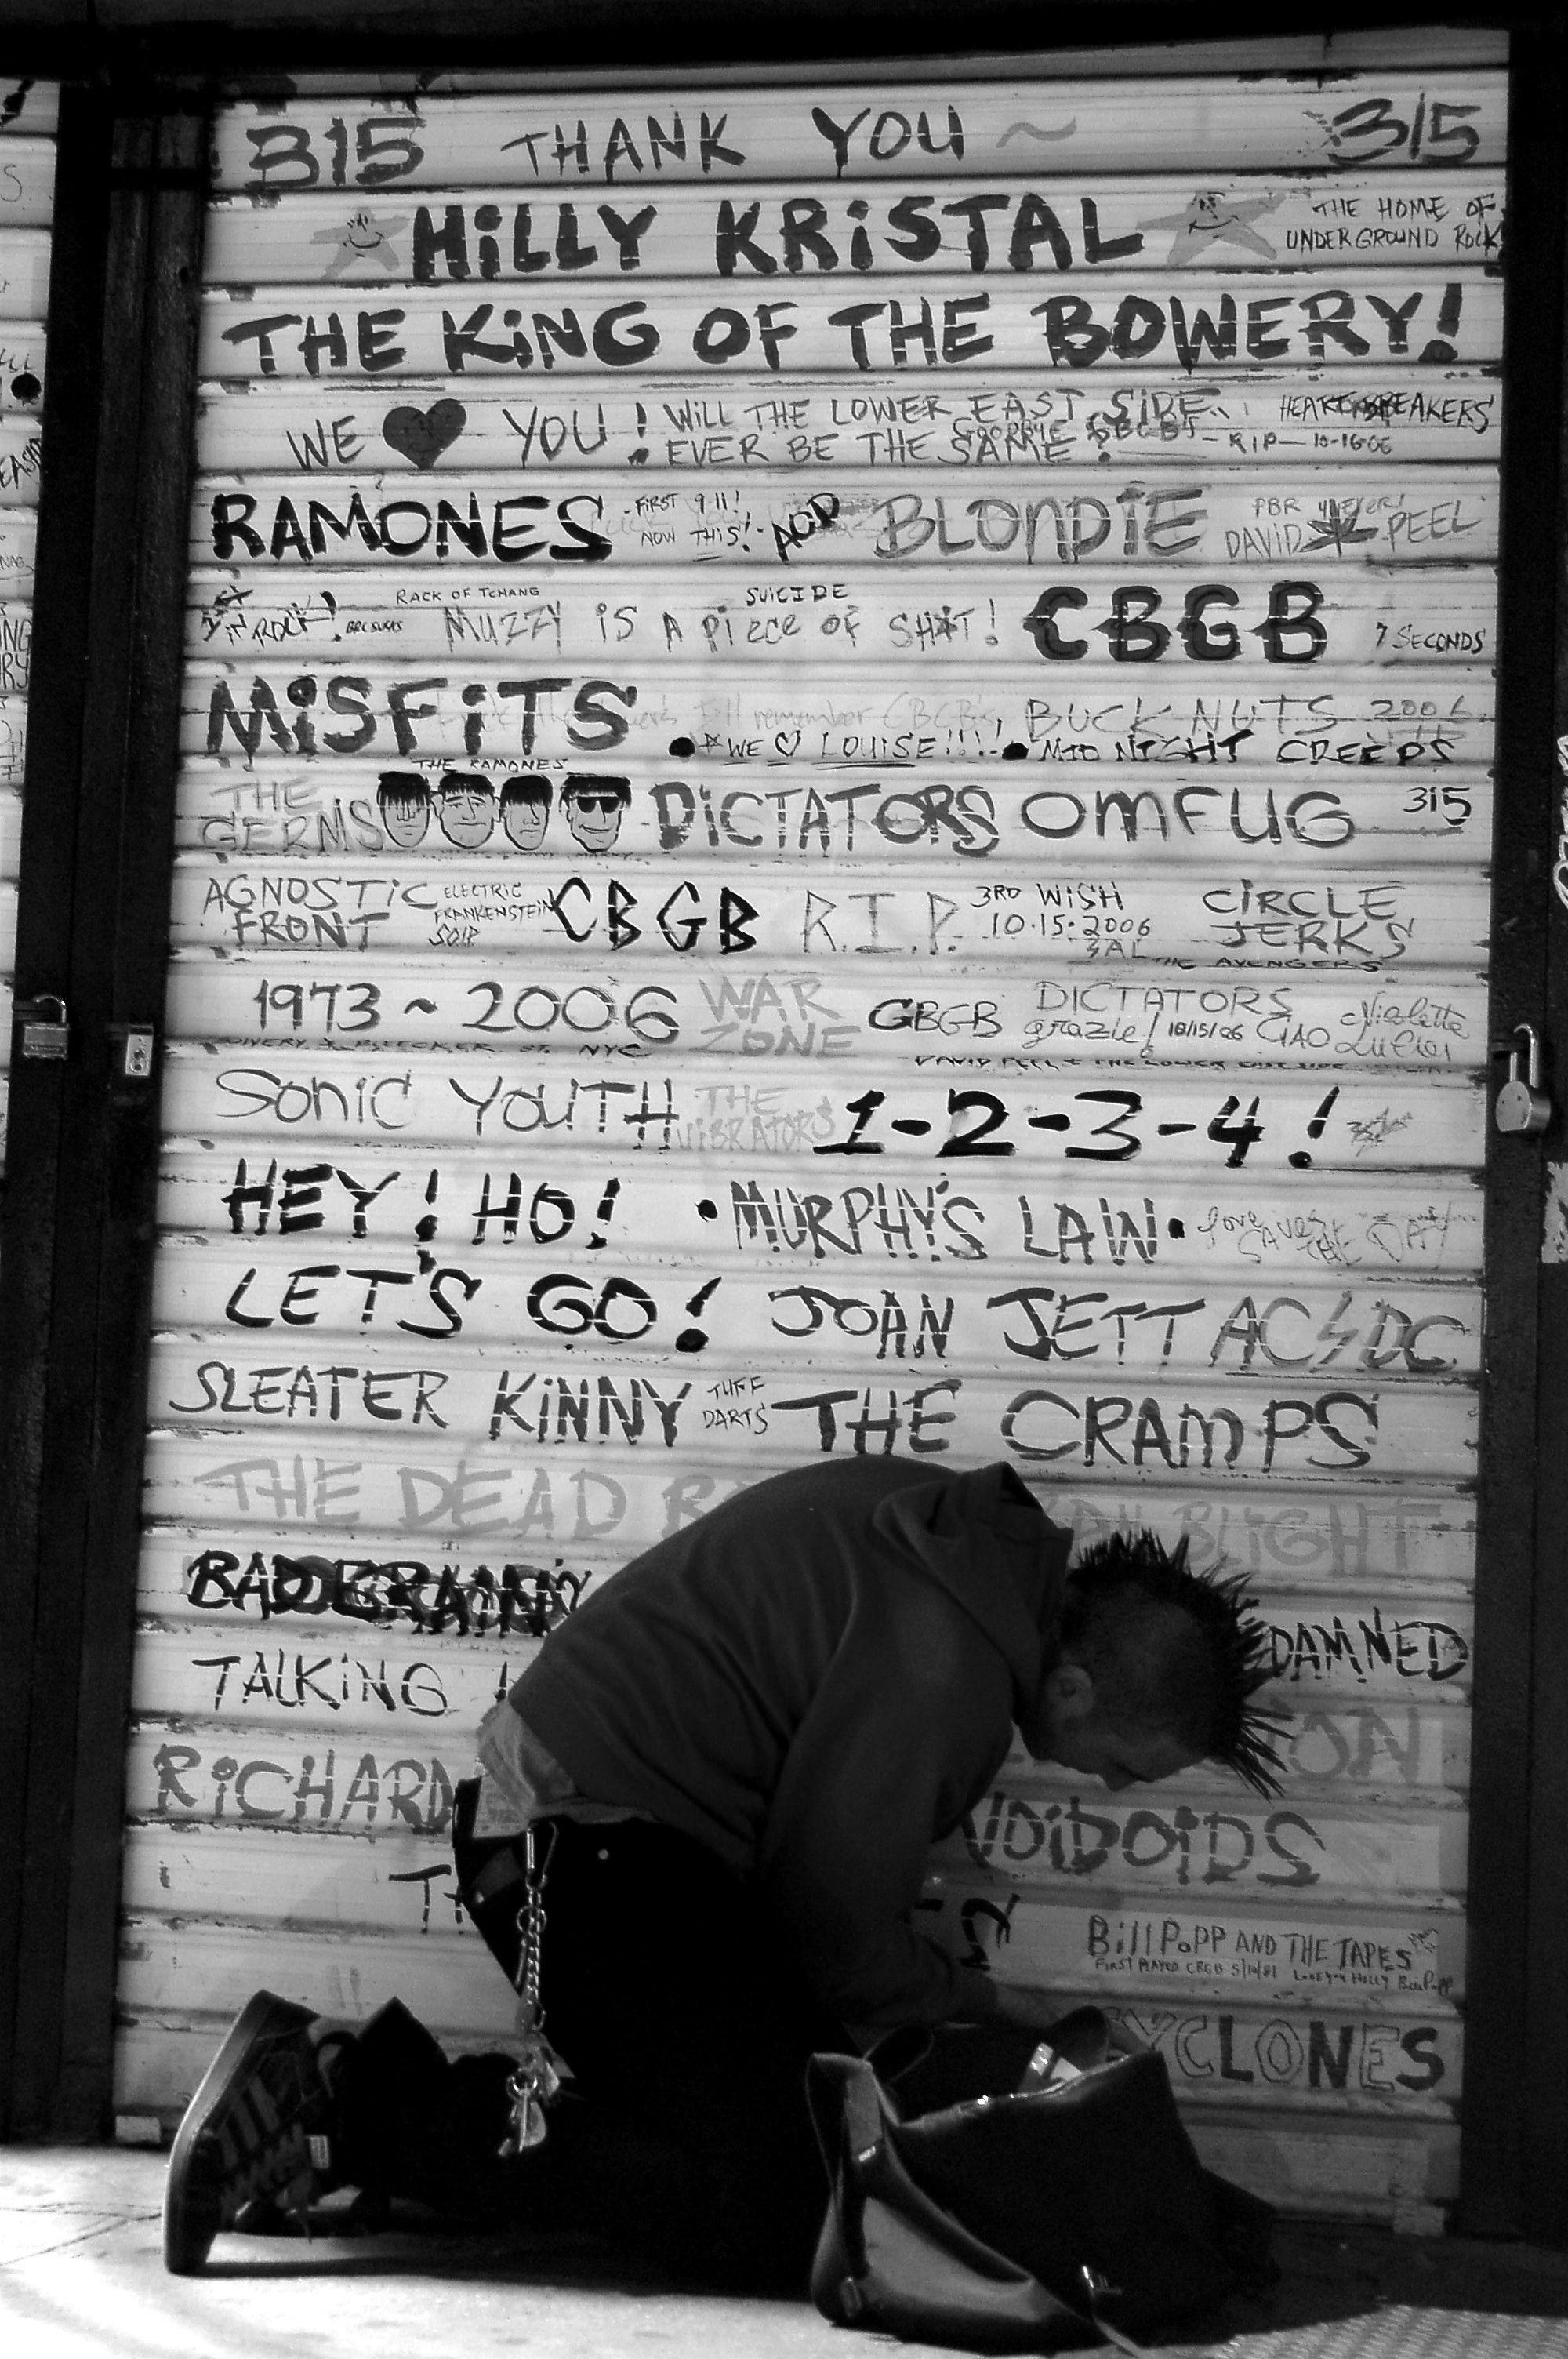 315 THANK YOU ~ 315
HiLLY KRiSTAL
THE HOME OF
UNDERGROUND ROCK
THE KiNG OF THE BOWERY!
WE YOU! WiLL THE LOWER EAST SiDE
EVER BE THE SAME?
GOODBYE CBGB'S
HEARTBREAKERS
R.I.P. 10-16-06
RAMONES
FIRST 9-11!
NOW THIS!
AOD
BLONDiE
PBR 4 EVER!
DAViD PEEL
RACK OF TCHANG
SUICIDE
ROCK!
MUZZY iS A PiEce OF SH*T!
CBGB
7 SECONDS
MiSFiTS
I'll remember CBGB's
BUCK NUTS 2006
WE LOUISE!!!!
MIDNIGHT CREEPS
THE RAMONES
THE
GERMS
DiCTATORS OMFUG 315
AGNOSTiC
FRONT
ELECTRIC
FRANKENSTEIN
CBGB R.I.P.
3RD WiSH
10·15·2006
SAL
CiRCLE
JERKS
THE AVENGERS
1973 ~ 2006
WAR
ZONE
CBGB
DICTATORS
grazie! 10/15/06 CIAO
Nicoletta
BOWERY & BLEECKER ST. NYC
DAVID PEEL & THE LOWER EAST SIDE
SONiC YOUTH
THE
ViBRATORS
1-2-3-4!
HEY! HO! · MURPHY'S LAW ·
love saves the DAY
LET'S GO! JOAN JETT AC⚡DC
SLEATER KiNNY
TUFF
DARTS
THE CRAMPS
THE DEAD
BLiGHT
BAD
DAMNED
TALKiNG
RiCHARD
VOiDOiDS
Bill PoPP AND THE TAPES
FIRST PLAYED CBGB 5/10/81 LOVE YOU HILLY Bill Popp
CYCLONES